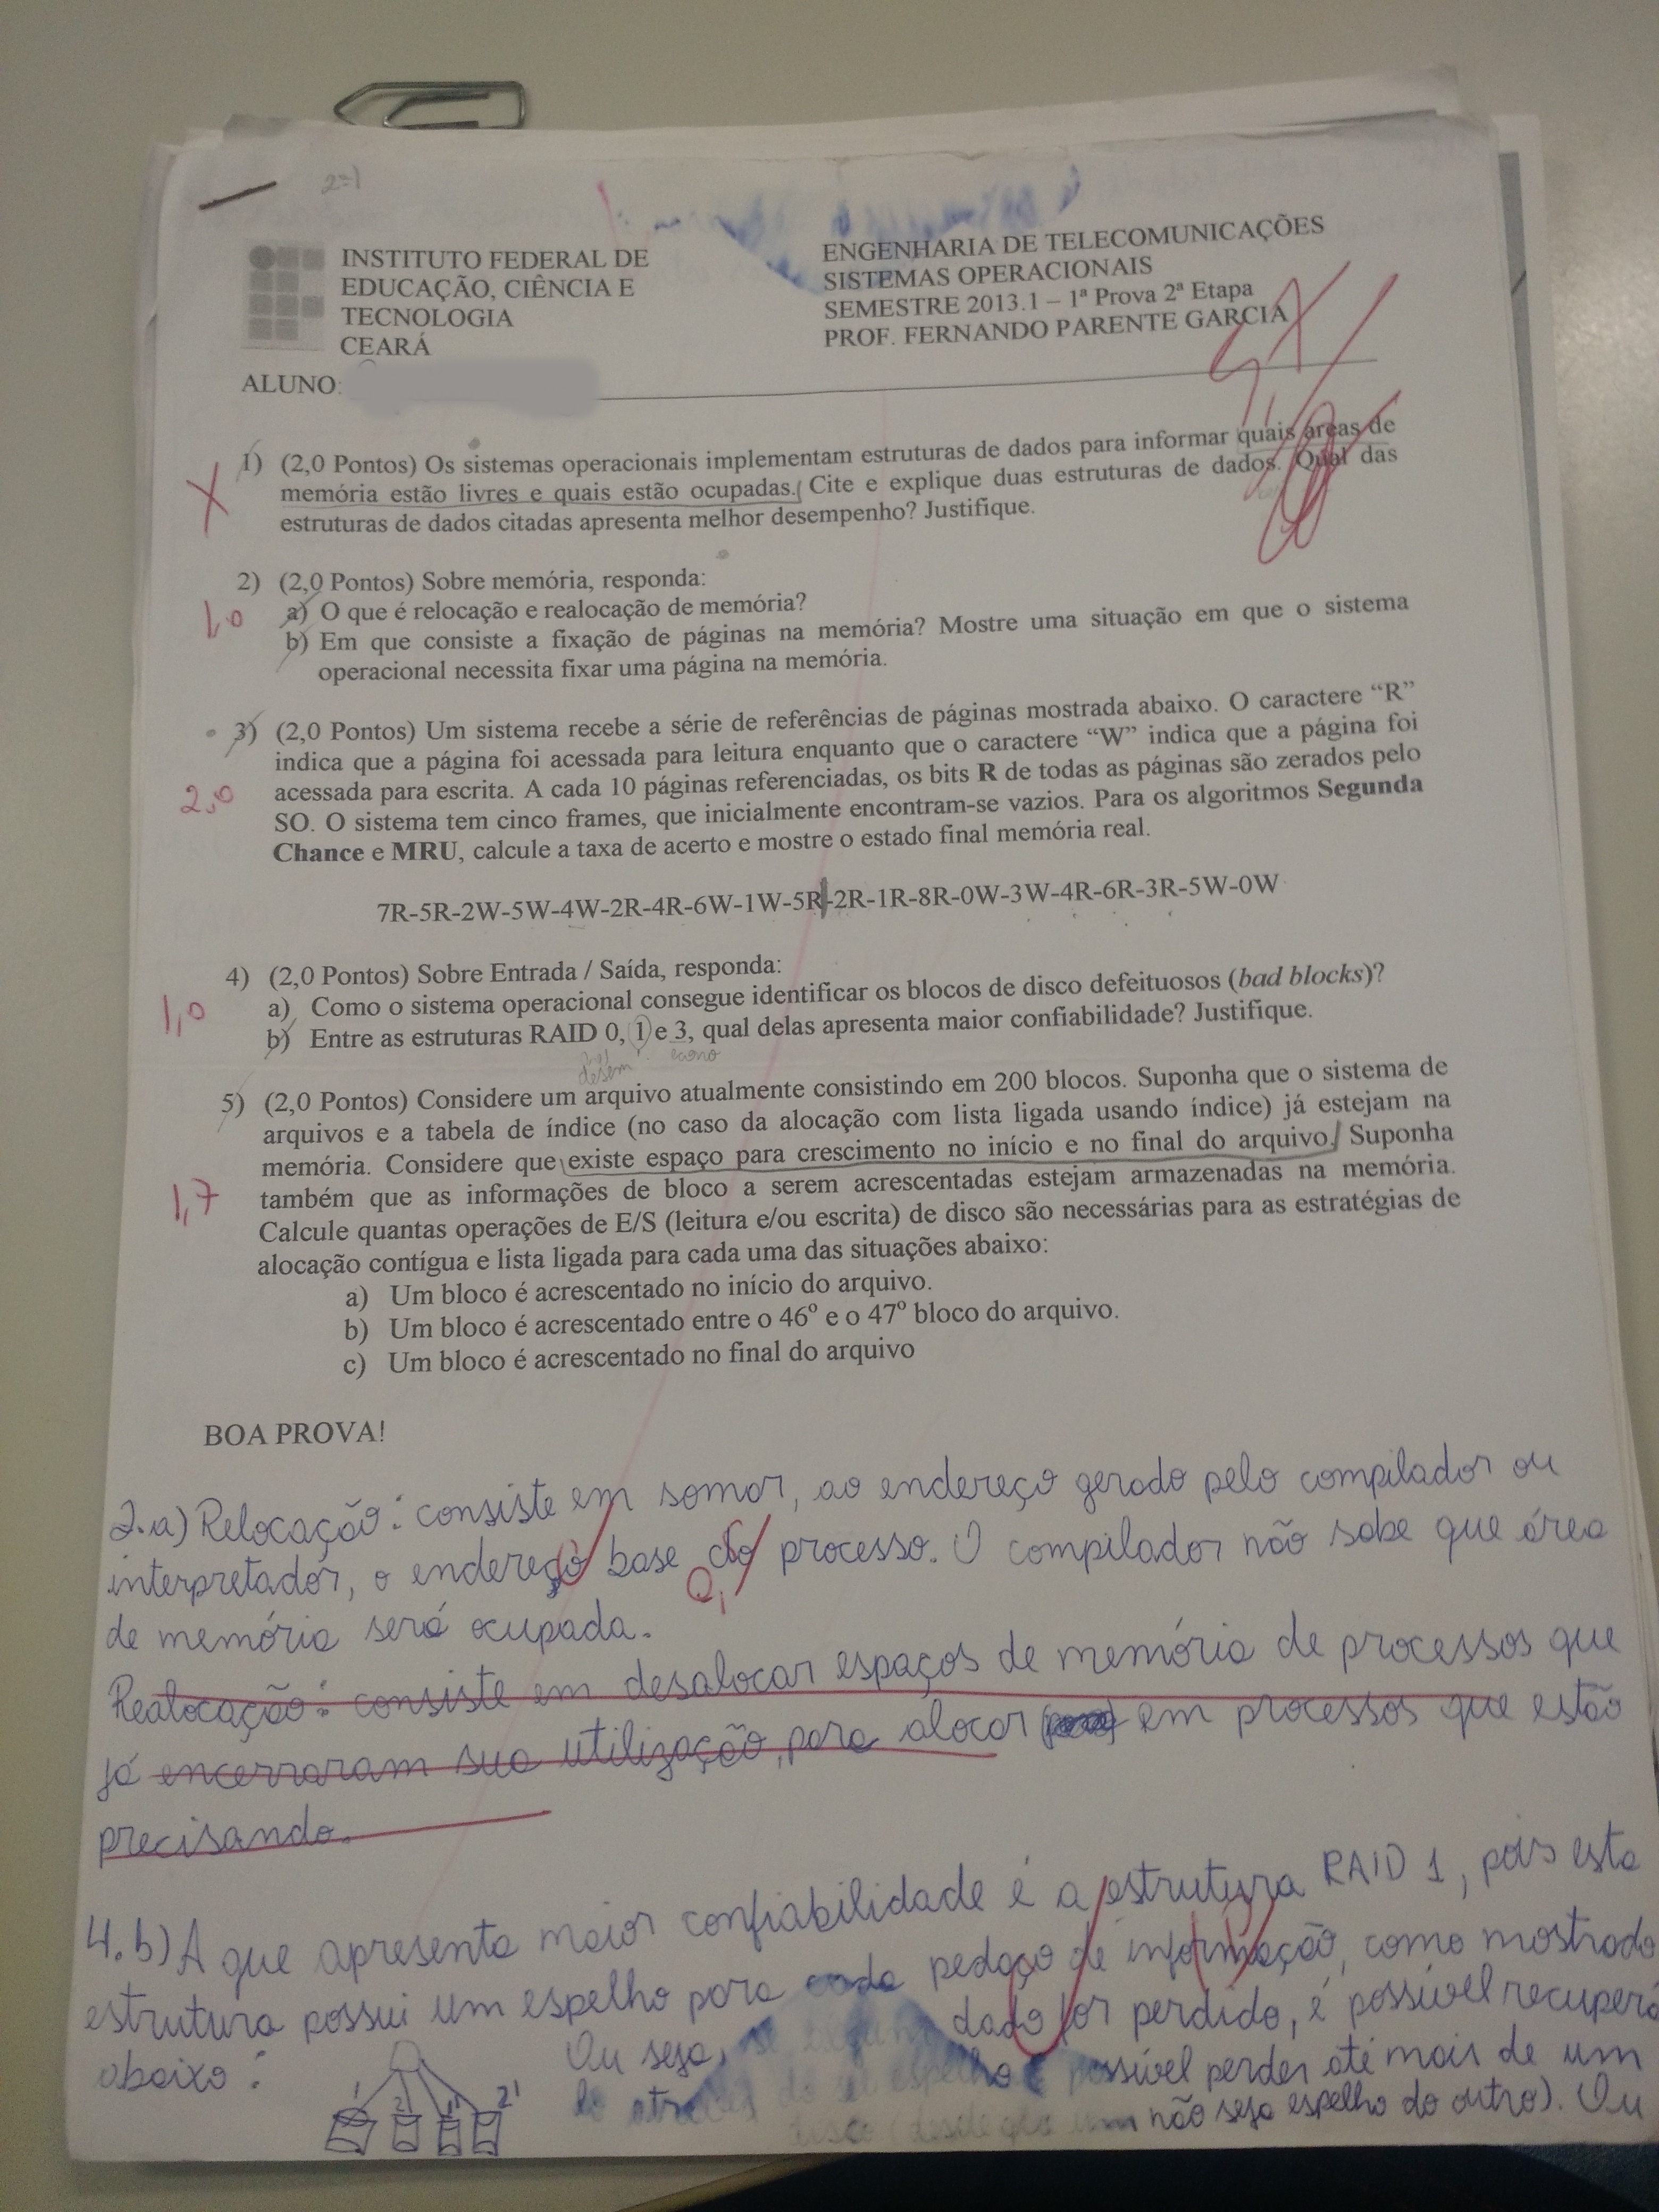 2=1
INSTITUTO FEDERAL DE
EDUCAÇÃO, CIÊNCIA E
TECNOLOGIA
CEARÁ
ENGENHARIA DE TELECOMUNICAÇÕES
SISTEMAS OPERACIONAIS
SEMESTRE 2013.1 – 1ª Prova 2ª Etapa
PROF. FERNANDO PARENTE GARCIA
ALUNO:
1) (2,0 Pontos) Os sistemas operacionais implementam estruturas de dados para informar quais áreas de
memória estão livres e quais estão ocupadas. Cite e explique duas estruturas de dados. Qual das
estruturas de dados citadas apresenta melhor desempenho? Justifique.
2) (2,0 Pontos) Sobre memória, responda:
1,0
a) O que é relocação e realocação de memória?
b) Em que consiste a fixação de páginas na memória? Mostre uma situação em que o sistema
operacional necessita fixar uma página na memória.
3) (2,0 Pontos) Um sistema recebe a série de referências de páginas mostrada abaixo. O caractere “R”
indica que a página foi acessada para leitura enquanto que o caractere “W” indica que a página foi
2,0
acessada para escrita. A cada 10 páginas referenciadas, os bits R de todas as páginas são zerados pelo
SO. O sistema tem cinco frames, que inicialmente encontram-se vazios. Para os algoritmos Segunda
Chance e MRU, calcule a taxa de acerto e mostre o estado final memória real.
7R-5R-2W-5W-4W-2R-4R-6W-1W-5R-2R-1R-8R-0W-3W-4R-6R-3R-5W-0W
4) (2,0 Pontos) Sobre Entrada / Saída, responda:
1,0
a) Como o sistema operacional consegue identificar os blocos de disco defeituosos (bad blocks)?
b) Entre as estruturas RAID 0, 1 e 3, qual delas apresenta maior confiabilidade? Justifique.
desem
5) (2,0 Pontos) Considere um arquivo atualmente consistindo em 200 blocos. Suponha que o sistema de
arquivos e a tabela de índice (no caso da alocação com lista ligada usando índice) já estejam na
memória. Considere que existe espaço para crescimento no início e no final do arquivo. Suponha
1,7
também que as informações de bloco a serem acrescentadas estejam armazenadas na memória.
Calcule quantas operações de E/S (leitura e/ou escrita) de disco são necessárias para as estratégias de
alocação contígua e lista ligada para cada uma das situações abaixo:
a) Um bloco é acrescentado no início do arquivo.
b) Um bloco é acrescentado entre o 46º e o 47º bloco do arquivo.
c) Um bloco é acrescentado no final do arquivo
BOA PROVA!
2.a) Relocação: consiste em somar, ao endereço gerado pelo compilador ou
interpretador, o endereço base do processo. O compilador não sabe que área
de memória será ocupada.
Realocação: consiste em desalocar espaços de memória de processos que
já encerraram sua utilização, para alocar em processos que estão
precisando.
4.b) A que apresenta maior confiabilidade é a estrutura RAID 1, pois esta
estrutura possui um espelho para cada pedaço de informação, como mostrado
abaixo:
1 2 1' 2'
Ou seja, se algum dado for perdido, é possível recuperá
lo através do seu espelho é possível perder até mais de um
disco (desde que um não seja espelho do outro). Ou